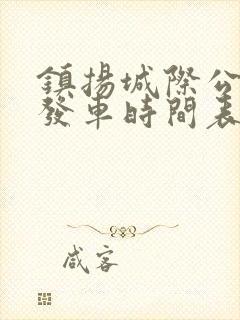 鎮揚城際公
發車時間表
咸客